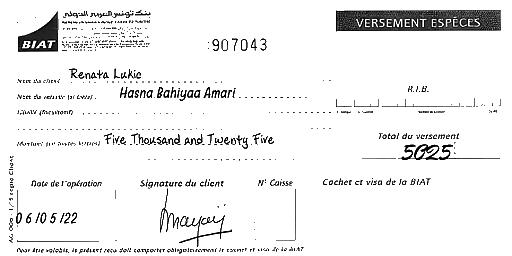 بنك تونس العربي الدولي
BIAT
:907043
VERSEMENT ESPÈCES
Nom du client Renata Lukic
Nom du remettant (si tiers) Hasna Bahiyaa Amari
R.I.B.
Libellé (facultatif)
Montant (en toutes lettres) Five Thousand and Twenty Five
Total du versement
5025
Date de l'opération
Signature du client
N° Caisse
Cachet et visa de la BIAT
06/05/22
Pour être valable, le présent reçu doit comporter obligatoirement le cachet et visa de la BIAT